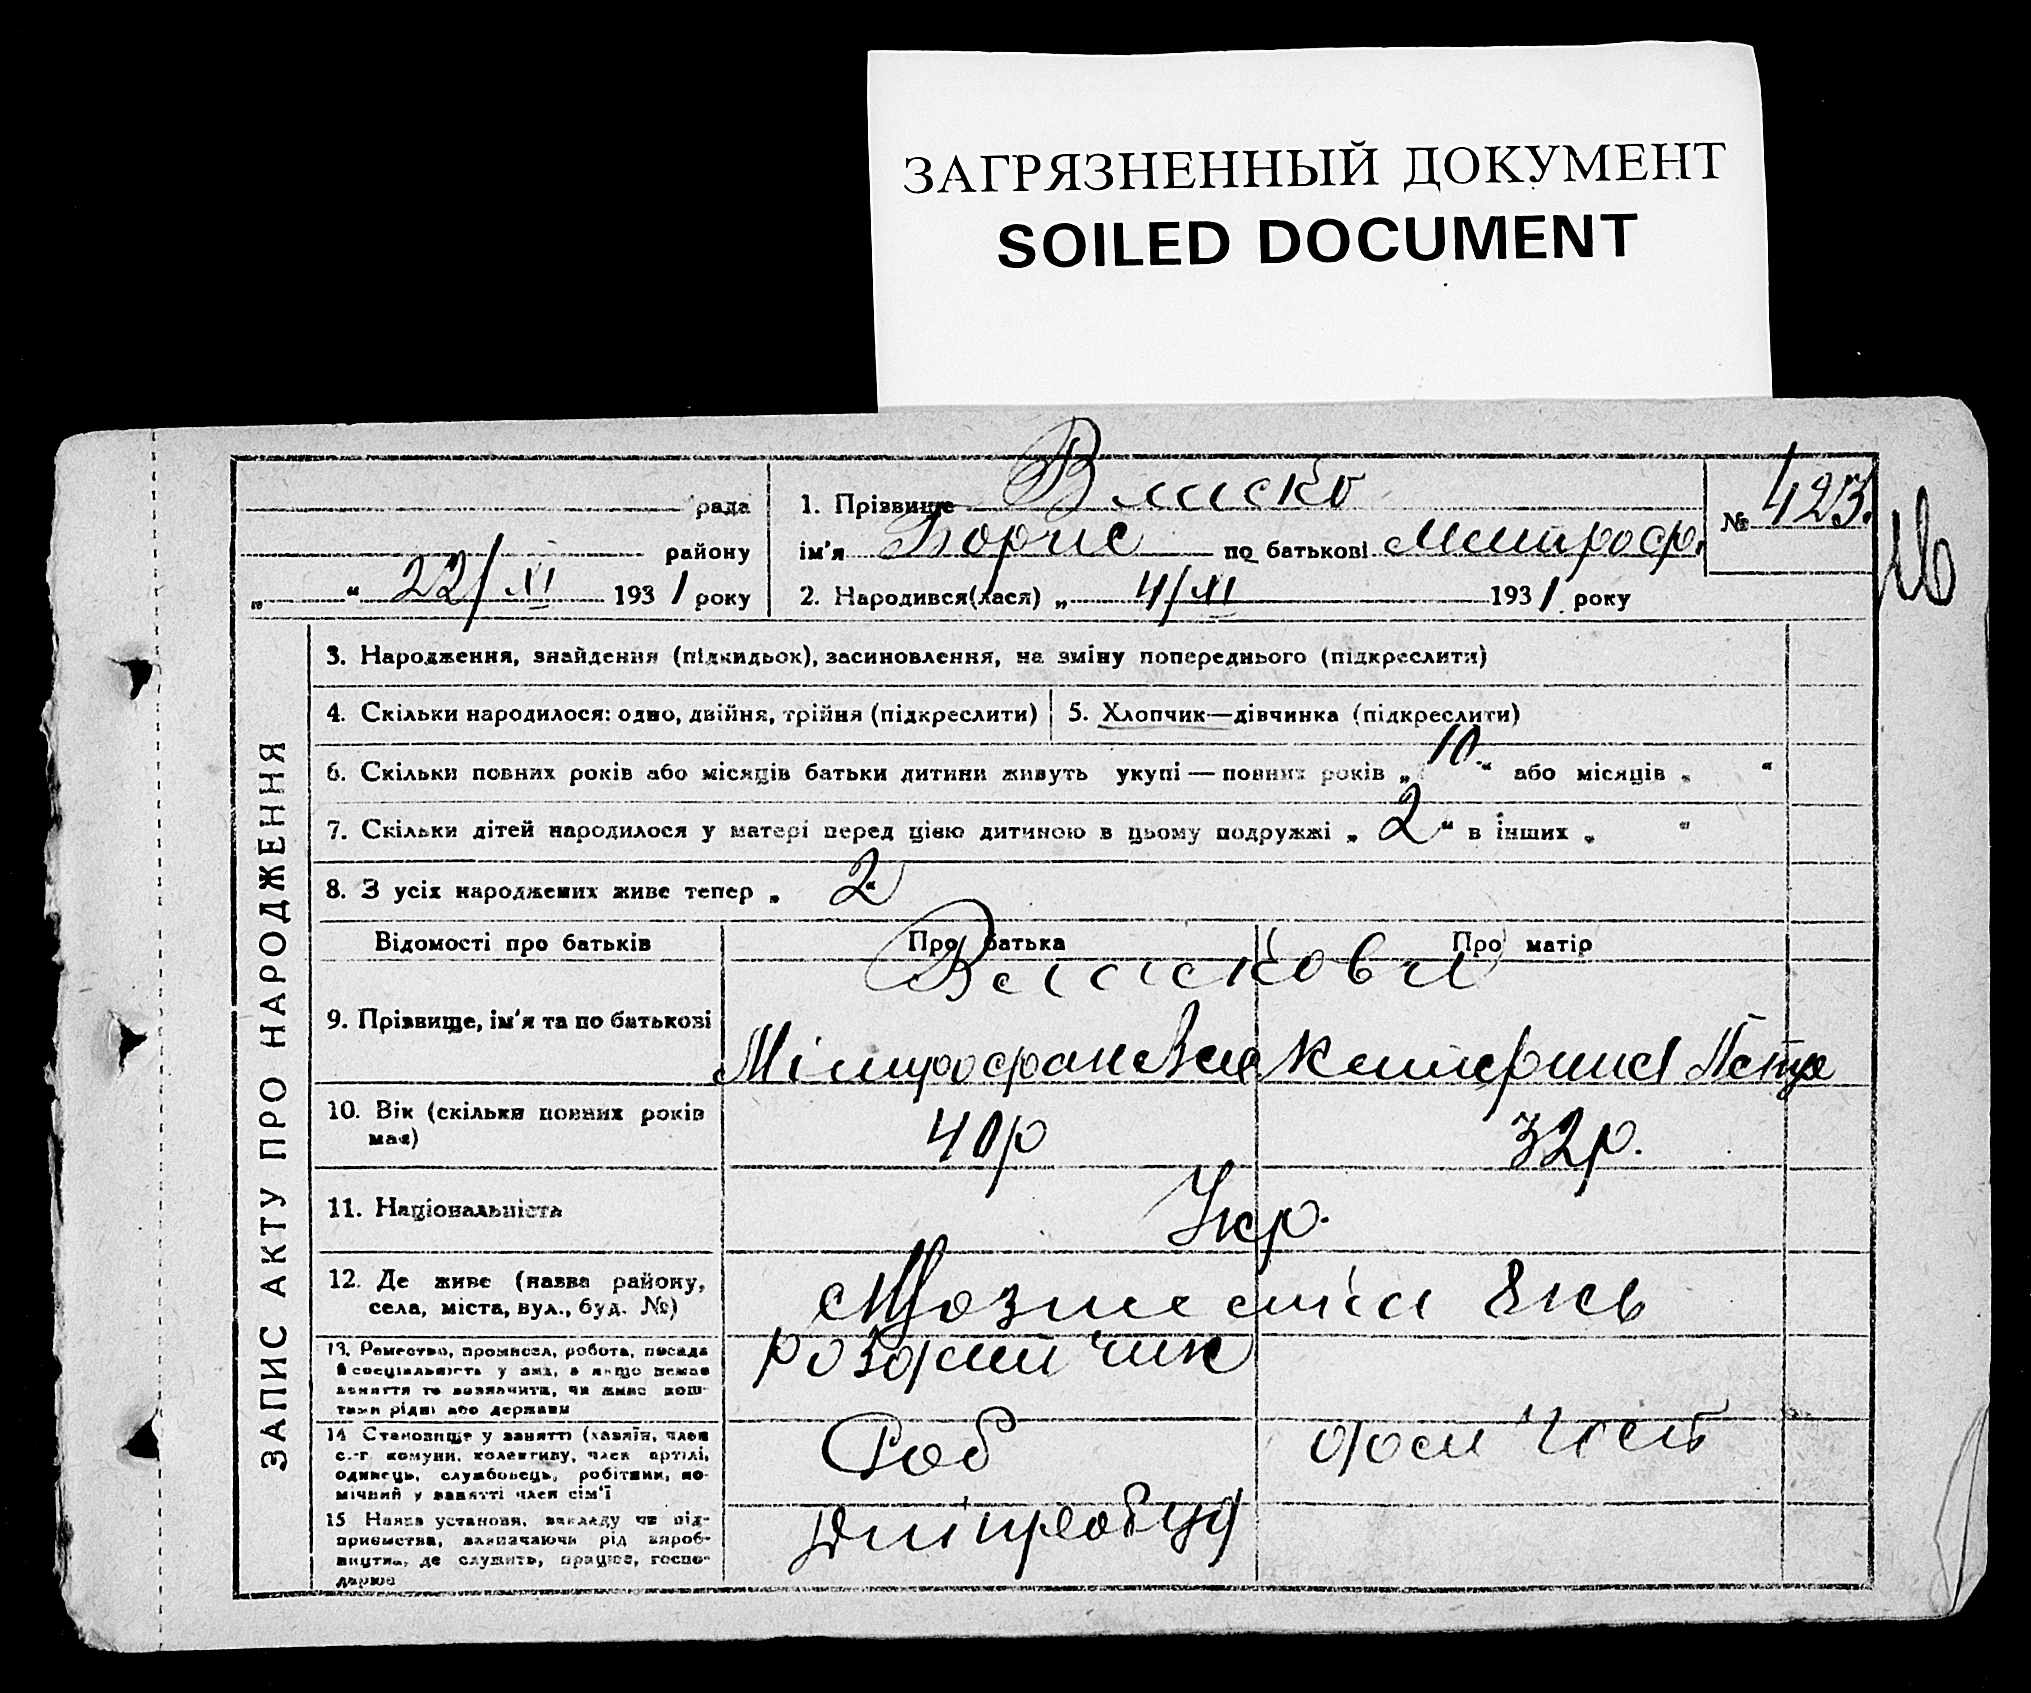 ЗАГРЯЗНЕННЫЙ ДОКУМЕНТ
SOILED DOCUMENT
рада
району
„ “ 22/XI 1931 року
1. Прізвище Власко
ім'я Борис по батькові Митроф.
2. Народився(лася) „ 4/XI 1931 року
№ 423.
ЗАПИС АКТУ ПРО НАРОДЖЕННЯ
3. Народження, знайдення (підкидьок), засиновлення, на зміну попереднього (підкреслити)
4. Скільки народилося: одно, двійня, трійня (підкреслити)
5. Хлопчик—дівчинка (підкреслити)
6. Скільки повних років або місяців батьки дитини живуть укупі — повних років „ 10 “ або місяців „ “
7. Скільки дітей народилося у матері перед цією дитиною в цьому подружжі „ 2 “ в інших „ “
8. З усіх народжених живе тепер „ 2 “
Відомості про батьків Про батька Про матір
9. Прізвище, ім'я та по батькові
Мітрофан Катерина
10. Вік (скільки повних років має) 40р 32р.
11. Національність Укр.
12. Де живе (назва району, села, міста, вул., буд. №)
13. Ремество, промисел, робота, посада й спеціяльність у них, а якщо немає заняття то зазначити, чи живе коштами рідні або держави
14 Становище у занятті (хазяїн, член с.-г. комуни, колективу, член артілі, одинець, службовець, робітник, помічний у занятті член сім'ї Роб
15 Назва установи, закладу чи підприємства, зазначаючи рід виробництва, де служить, працює, господарює Дніпробуд